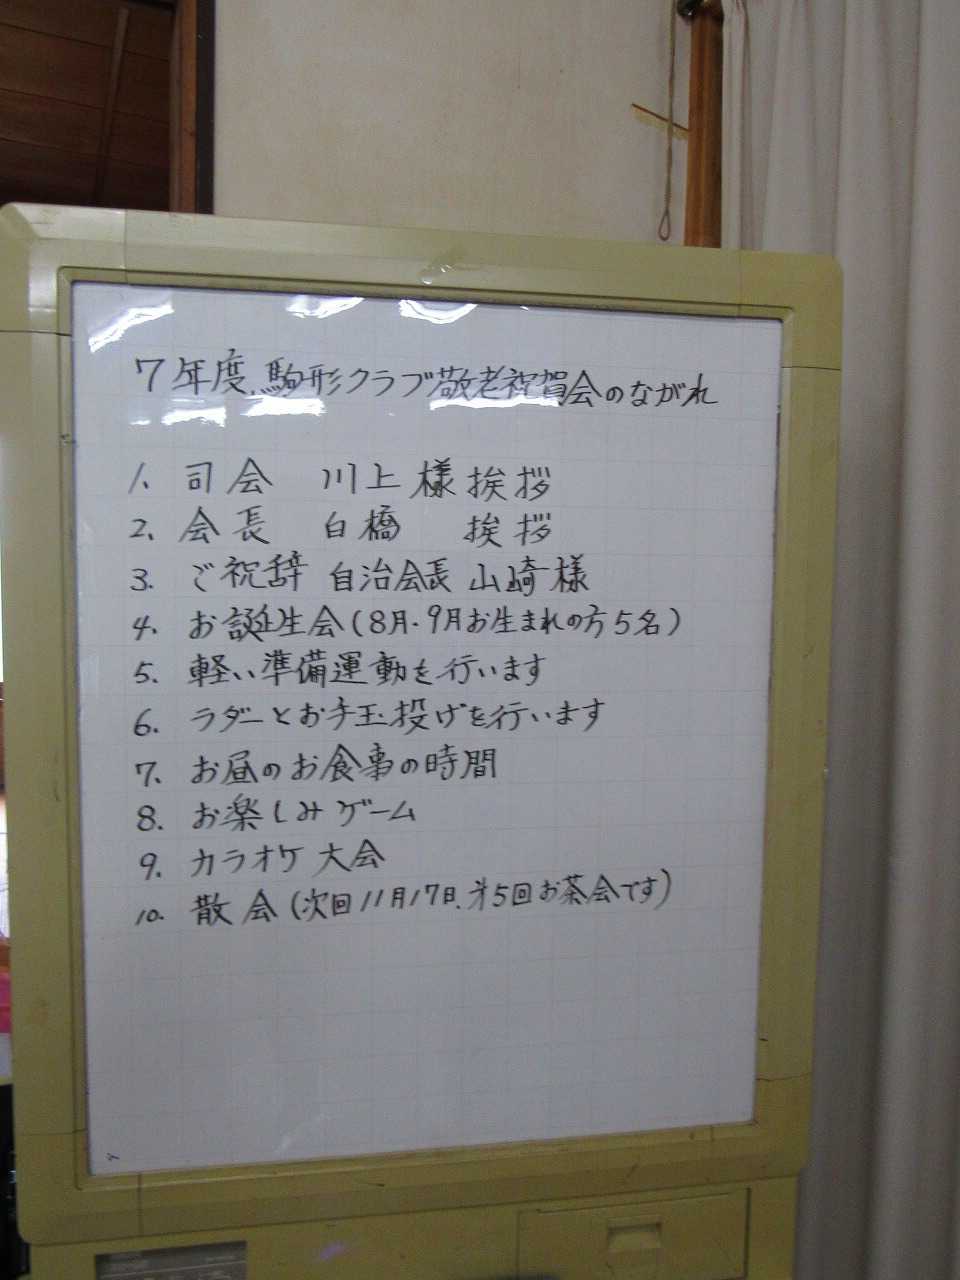 7年度.駒形クラブ敬老祝賀会のながれ
1、司会 川上様挨拶
2、会長 白橋 挨拶
3. ご祝辞 自治会長 山崎様
4. お誕生会(8月・9月お生まれの方5名)
5. 軽い準備運動を行います
6. ラダーとお手玉投げを行います
7. お昼のお食事の時間
8. お楽しみゲーム
9. カラオケ大会
10. 散会(次回11月17日、第5回お茶会です)